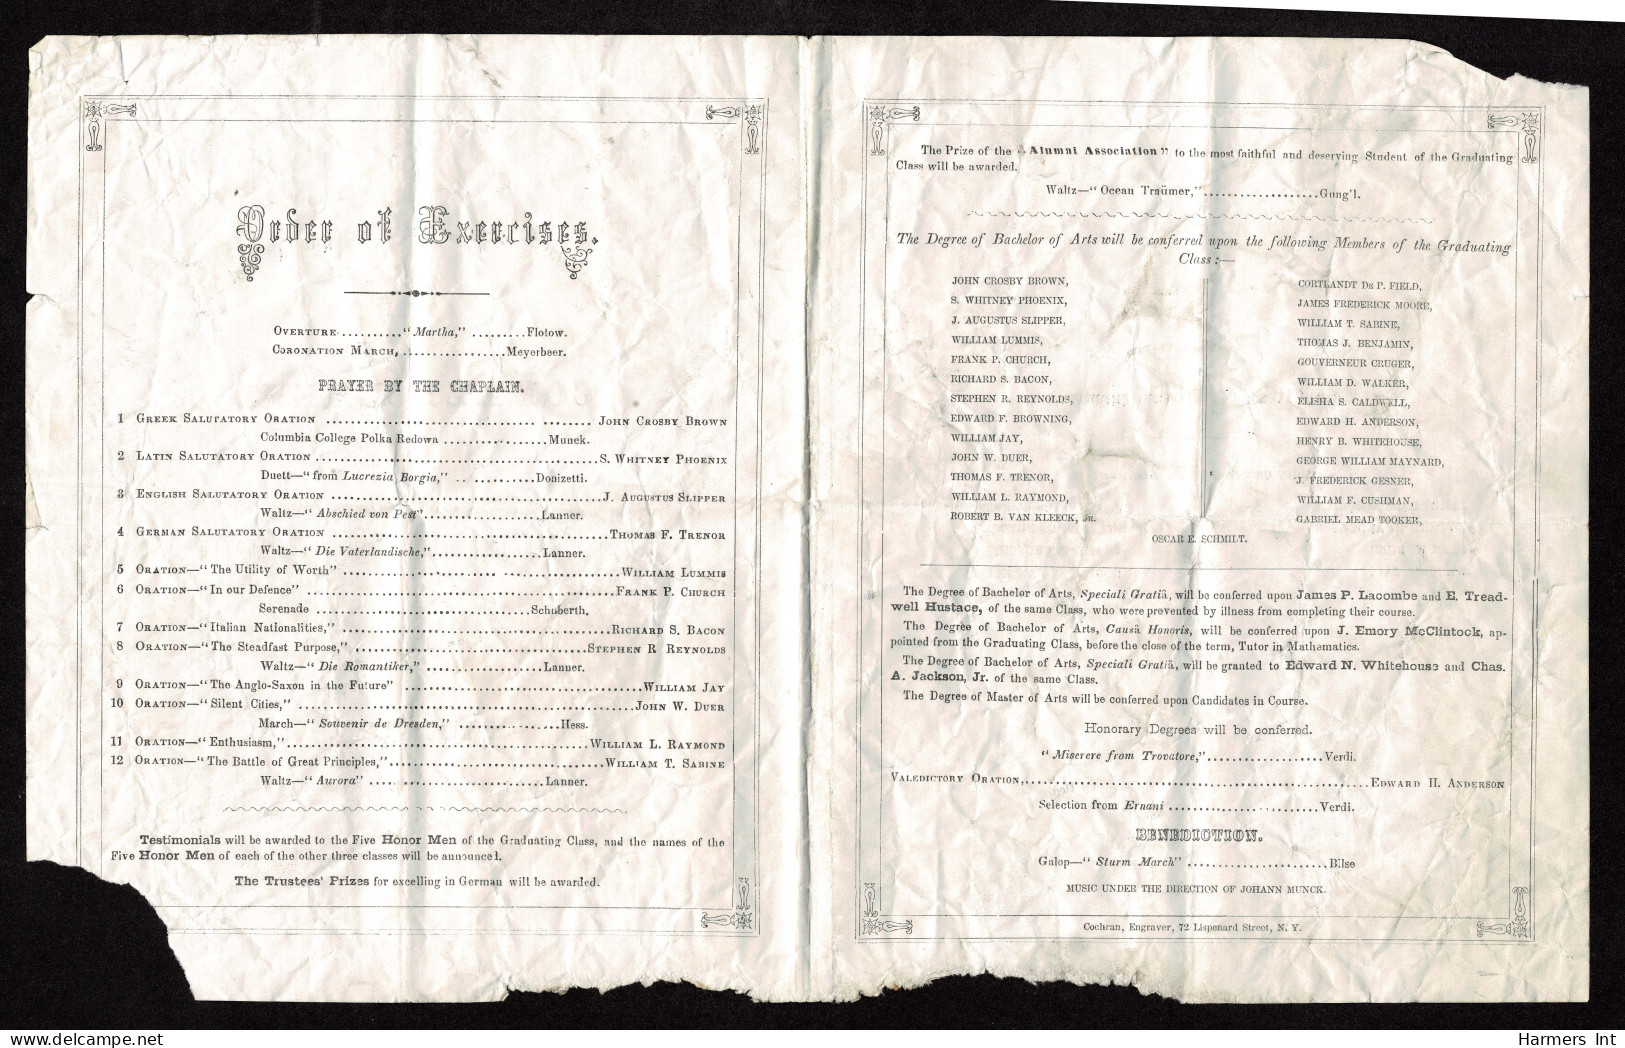 Order of Exercises.
OVERTURE.........."Martha,".........Flotow.
CORONATION MARCH,..................Meyerbeer.
PRAYER BY THE CHAPLAIN.
1 GREEK SALUTATORY ORATION ........................................ JOHN CROSBY BROWN
Columbia College Polka Redowa ..................Munck.
2 LATIN SALUTATORY ORATION ........................................S. WHITNEY PHOENIX
Duett—"from Lucrezia Borgia," .. ..........Donizetti.
3 ENGLISH SALUTATORY ORATION ........................................J. AUGUSTUS SLIPPER
Waltz—"Abschied von Pest"....................Lanner.
4 GERMAN SALUTATORY ORATION ........................................THOMAS F. TRENOR
Waltz—"Die Vaterlandische,"...................Lanner.
5 ORATION—"The Utility of Worth" ........................................WILLIAM LUMMIS
6 ORATION—"In our Defence" ........................................FRANK P. CHURCH
Serenade ....................................Schuberth.
7 ORATION—"Italian Nationalities," ........................................RICHARD S. BACON
8 ORATION—"The Steadfast Purpose,"........................................STEPHEN R REYNOLDS
Waltz—"Die Romantiker," ....................Lanner.
9 ORATION—"The Anglo-Saxon in the Future" ........................................WILLIAM JAY
10 ORATION—"Silent Cities," ........................................JOHN W. DUER
March—"Souvenir de Dresden," ..................Hess.
11 ORATION—"Enthusiasm,"........................................WILLIAM L. RAYMOND
12 ORATION—"The Battle of Great Principles,"........................................WILLIAM T. SABINE
Waltz—"Aurora" ..............................Lanner.
Testimonials will be awarded to the Five Honor Men of the Graduating Class, and the names of the
Five Honor Men of each of the other three classes will be announcel.
The Trustees' Prizes for excelling in German will be awarded.
The Prize of the "Alumni Association" to the most faithful and deserving Student of the Graduating
Class will be awarded.
Waltz—"Ocean Traümer,"....................Gung'l.
The Degree of Bachelor of Arts will be conferred upon the following Members of the Graduating
Class:—
JOHN CROSBY BROWN,
S. WHITNEY PHOENIX,
J. AUGUSTUS SLIPPER,
WILLIAM LUMMIS,
FRANK P. CHURCH,
RICHARD S. BACON,
STEPHEN R. REYNOLDS,
EDWARD F. BROWNING,
WILLIAM JAY,
JOHN W. DUER,
THOMAS F. TRENOR,
WILLIAM L. RAYMOND,
ROBERT B. VAN KLEECK, JR.
CORTLANDT DE P. FIELD,
JAMES FREDERICK MOORE,
WILLIAM T. SABINE,
THOMAS J. BENJAMIN,
GOUVERNEUR CRUGER,
WILLIAM D. WALKER,
ELISHA S. CALDWELL,
EDWARD H. ANDERSON,
HENRY B. WHITEHOUSE,
GEORGE WILLIAM MAYNARD,
J. FREDERICK GESNER,
WILLIAM F. CUSHMAN,
GABRIEL MEAD TOOKER,
OSCAR E. SCHMILT.
The Degree of Bachelor of Arts, Speciali Gratiâ, will be conferred upon James P. Lacombe and E. Tread-
well Hustace, of the same Class, who were prevented by illness from completing their course.
The Degree of Bachelor of Arts, Causâ Honoris, will be conferred upon J. Emory McClintock, ap-
pointed from the Graduating Class, before the close of the term, Tutor in Mathematics.
The Degree of Bachelor of Arts, Speciali Gratiâ, will be granted to Edward N. Whitehouse and Chas.
A. Jackson, Jr. of the same Class.
The Degree of Master of Arts will be conferred upon Candidates in Course.
Honorary Degrees will be conferred.
"Miserere from Trovatore,"....................Verdi.
VALEDICTORY ORATION,........................................EDWARD H. ANDERSON
Selection from Ernani ..........................Verdi.
BENEDICTION.
Galop—"Sturm March" ........................Bilse
MUSIC UNDER THE DIRECTION OF JOHANN MUNCK.
Cochran, Engraver, 72 Lispenard Street, N. Y.
Harmers Int